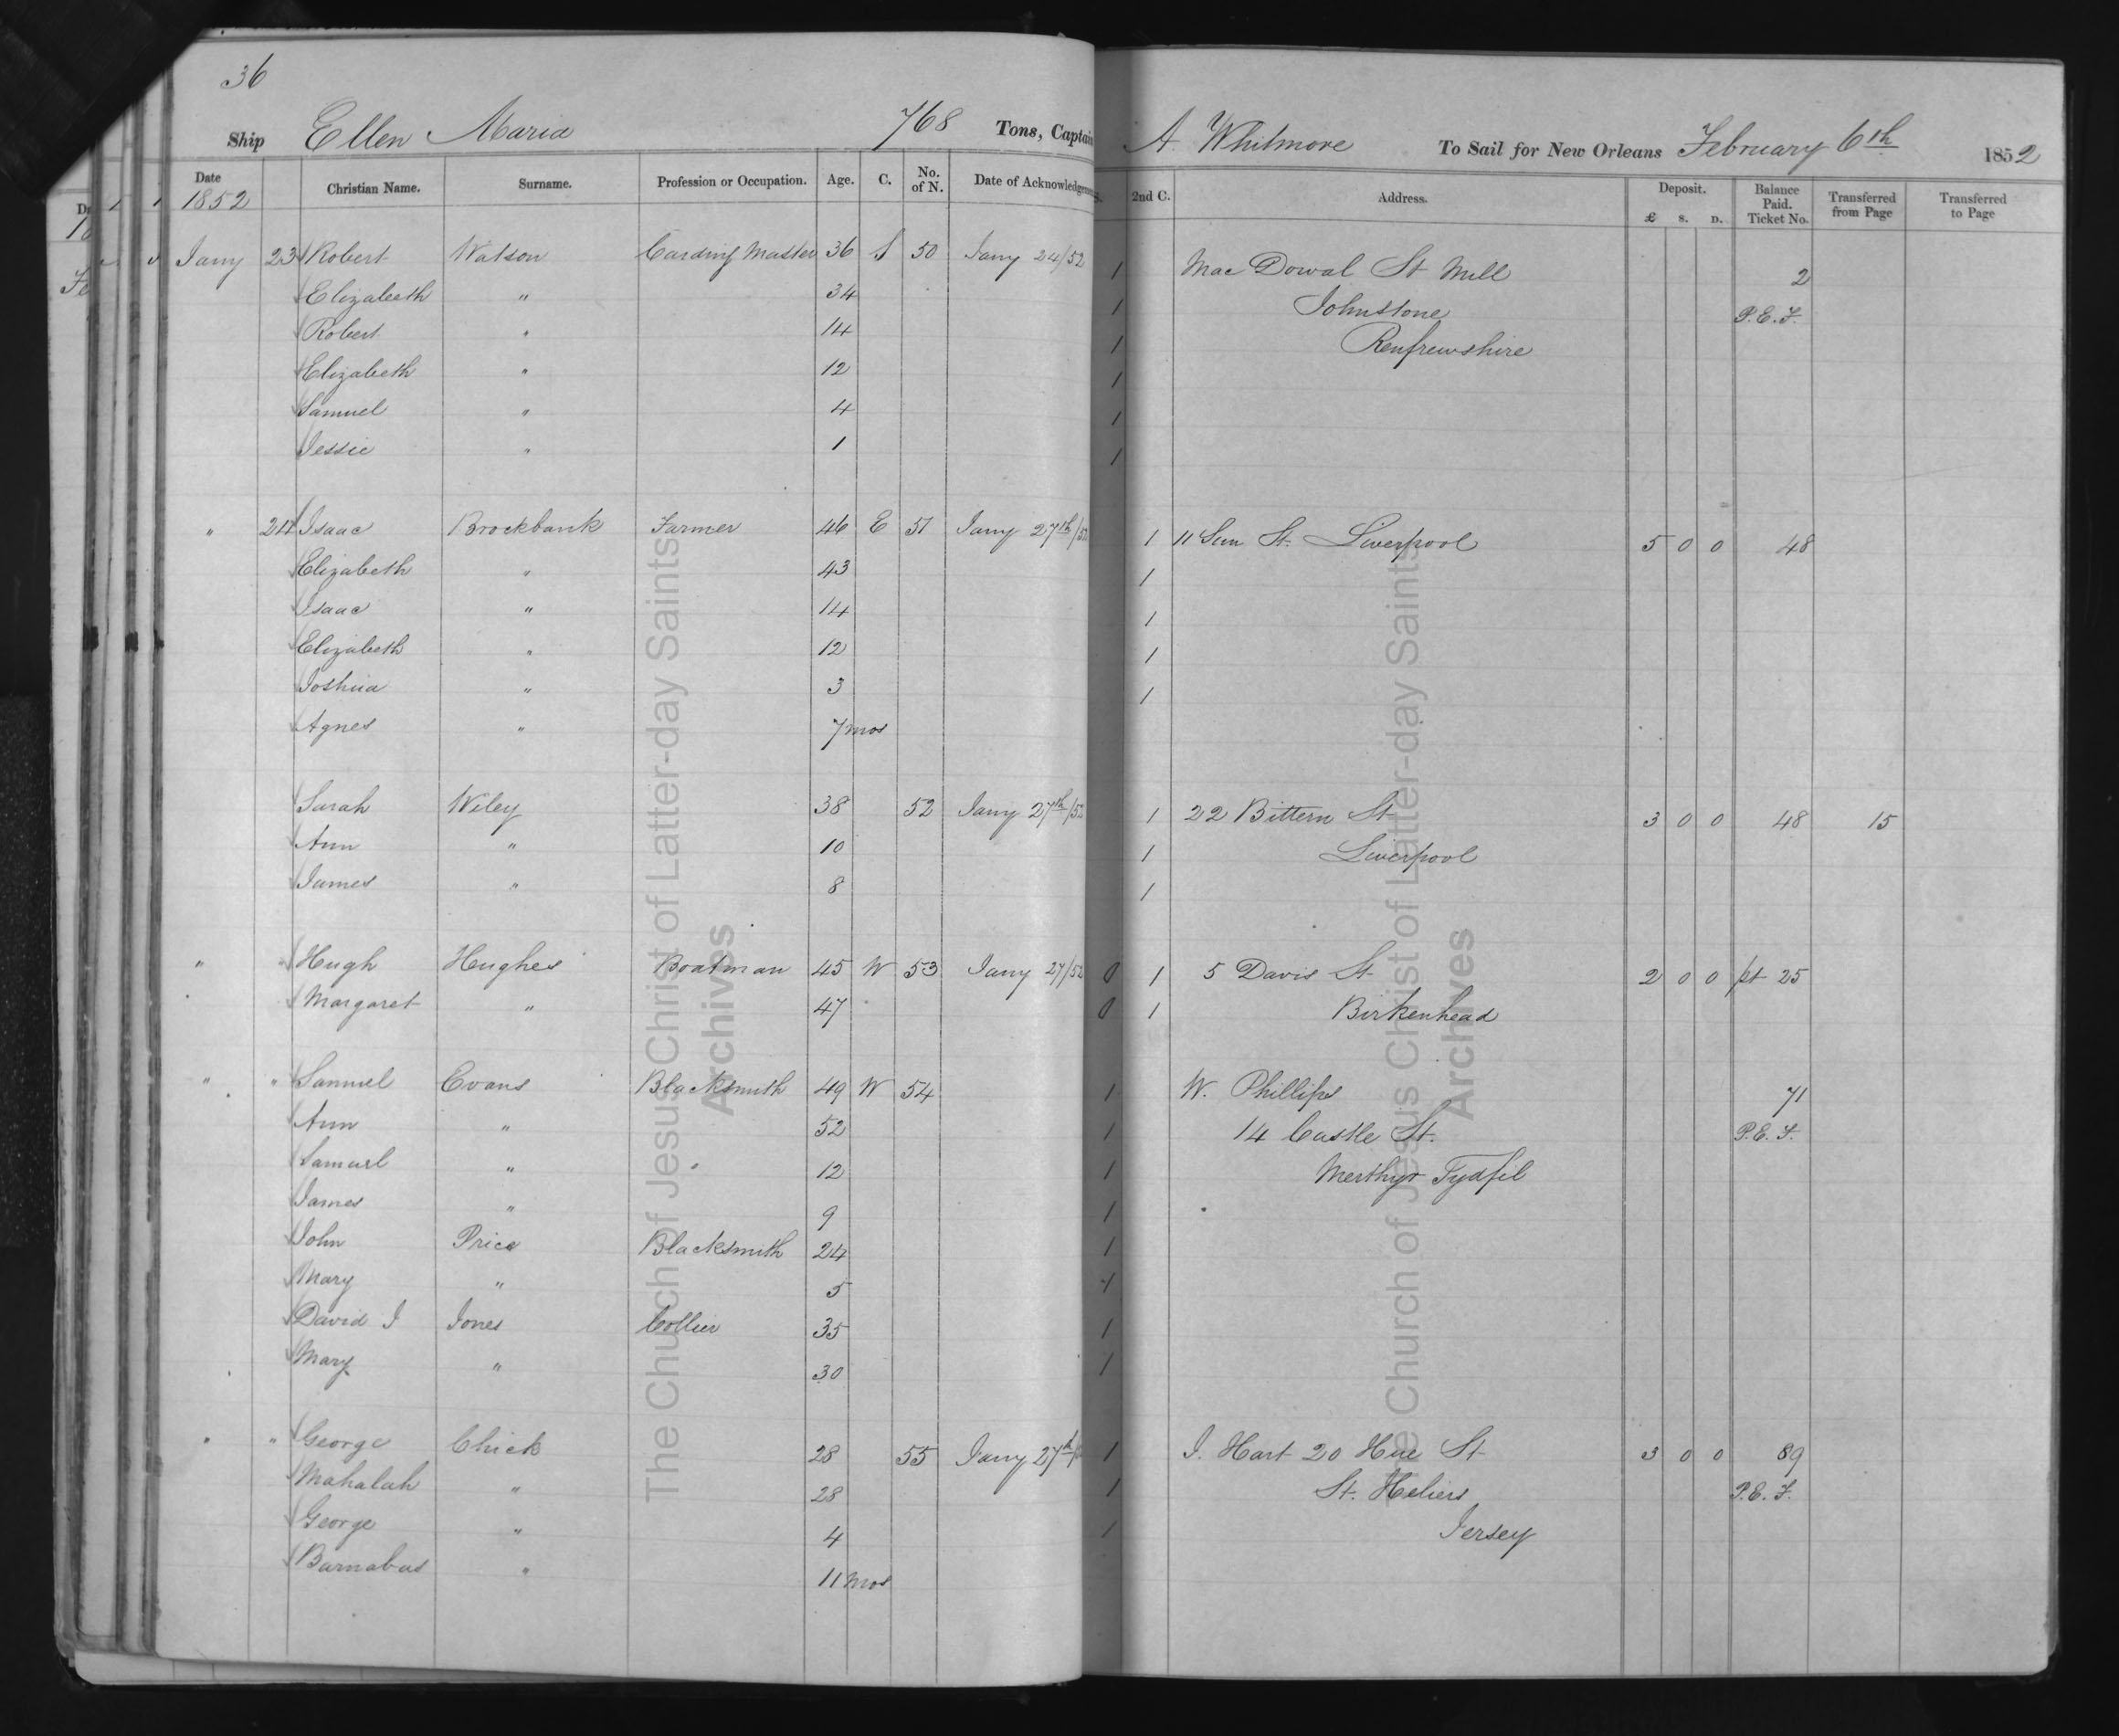 36
Ship Ellen Maria 768 Tons, Captain A. Whitmore To Sail for New Orleans February 6th 1852
Date 1852 Christian Name. Surname. Profession or Occupation. Age. C. No. of N. Date of Acknowledgment 2nd C. Address. Deposit. £ S. D. Balance Paid. Ticket No. Transferred from Page Transferred to Page
Jany 23 Robert Watson Carding Master 36 S 50 Jany 24/52 1 Mac Dowal St Mill 2
Elizabeth " 34 1 Johnstone P.E.F.
Robert " 14 1 Renfrewshire
Elizabeth " 12 1
Samuel " 4 1
Jessie " 1 1
" 24 Isaac Brockbank Farmer 46 E 51 Jany 27th/52 1 11 Sun St. Liverpool 5 0 0 48
Elizabeth " 43 1
Isaac " 14 1
Elizabeth " 12 1
Joshua " 3 1
Agnes " 7 mos
Sarah Wiley 38 52 Jany 27th/52 1 22 Bittern St 3 0 0 48 15
Ann " 10 1 Liverpool
James " 8 1
" " Hugh Hughes Boatman 45 W 53 Jany 27/52 0 1 5 Davis St 2 0 0 pt 25
Margaret " 47 0 1 Birkenhead
" " Samuel Evans Blacksmith 49 W 54 1 W. Phillips 71
Ann " 52 1 14 Castle St. P.E.F.
Samuel " 12 1 Merthyr Tydfil
James " 9 1
John Price Blacksmith 24 1
Mary " 5 1
David J Jones Collier 35 1
Mary " 30 1
" " George Chick 28 55 Jany 27th 1 J. Hart 20 Hue St 3 0 0 89
Mahalah " 28 1 St. Heliers P.E.F.
George " 4 1 Jersey
Barnabas " 11 mos
The Church of Jesus Christ of Latter-day Saints
Archives
The Church of Jesus Christ of Latter-day Saints
Archives